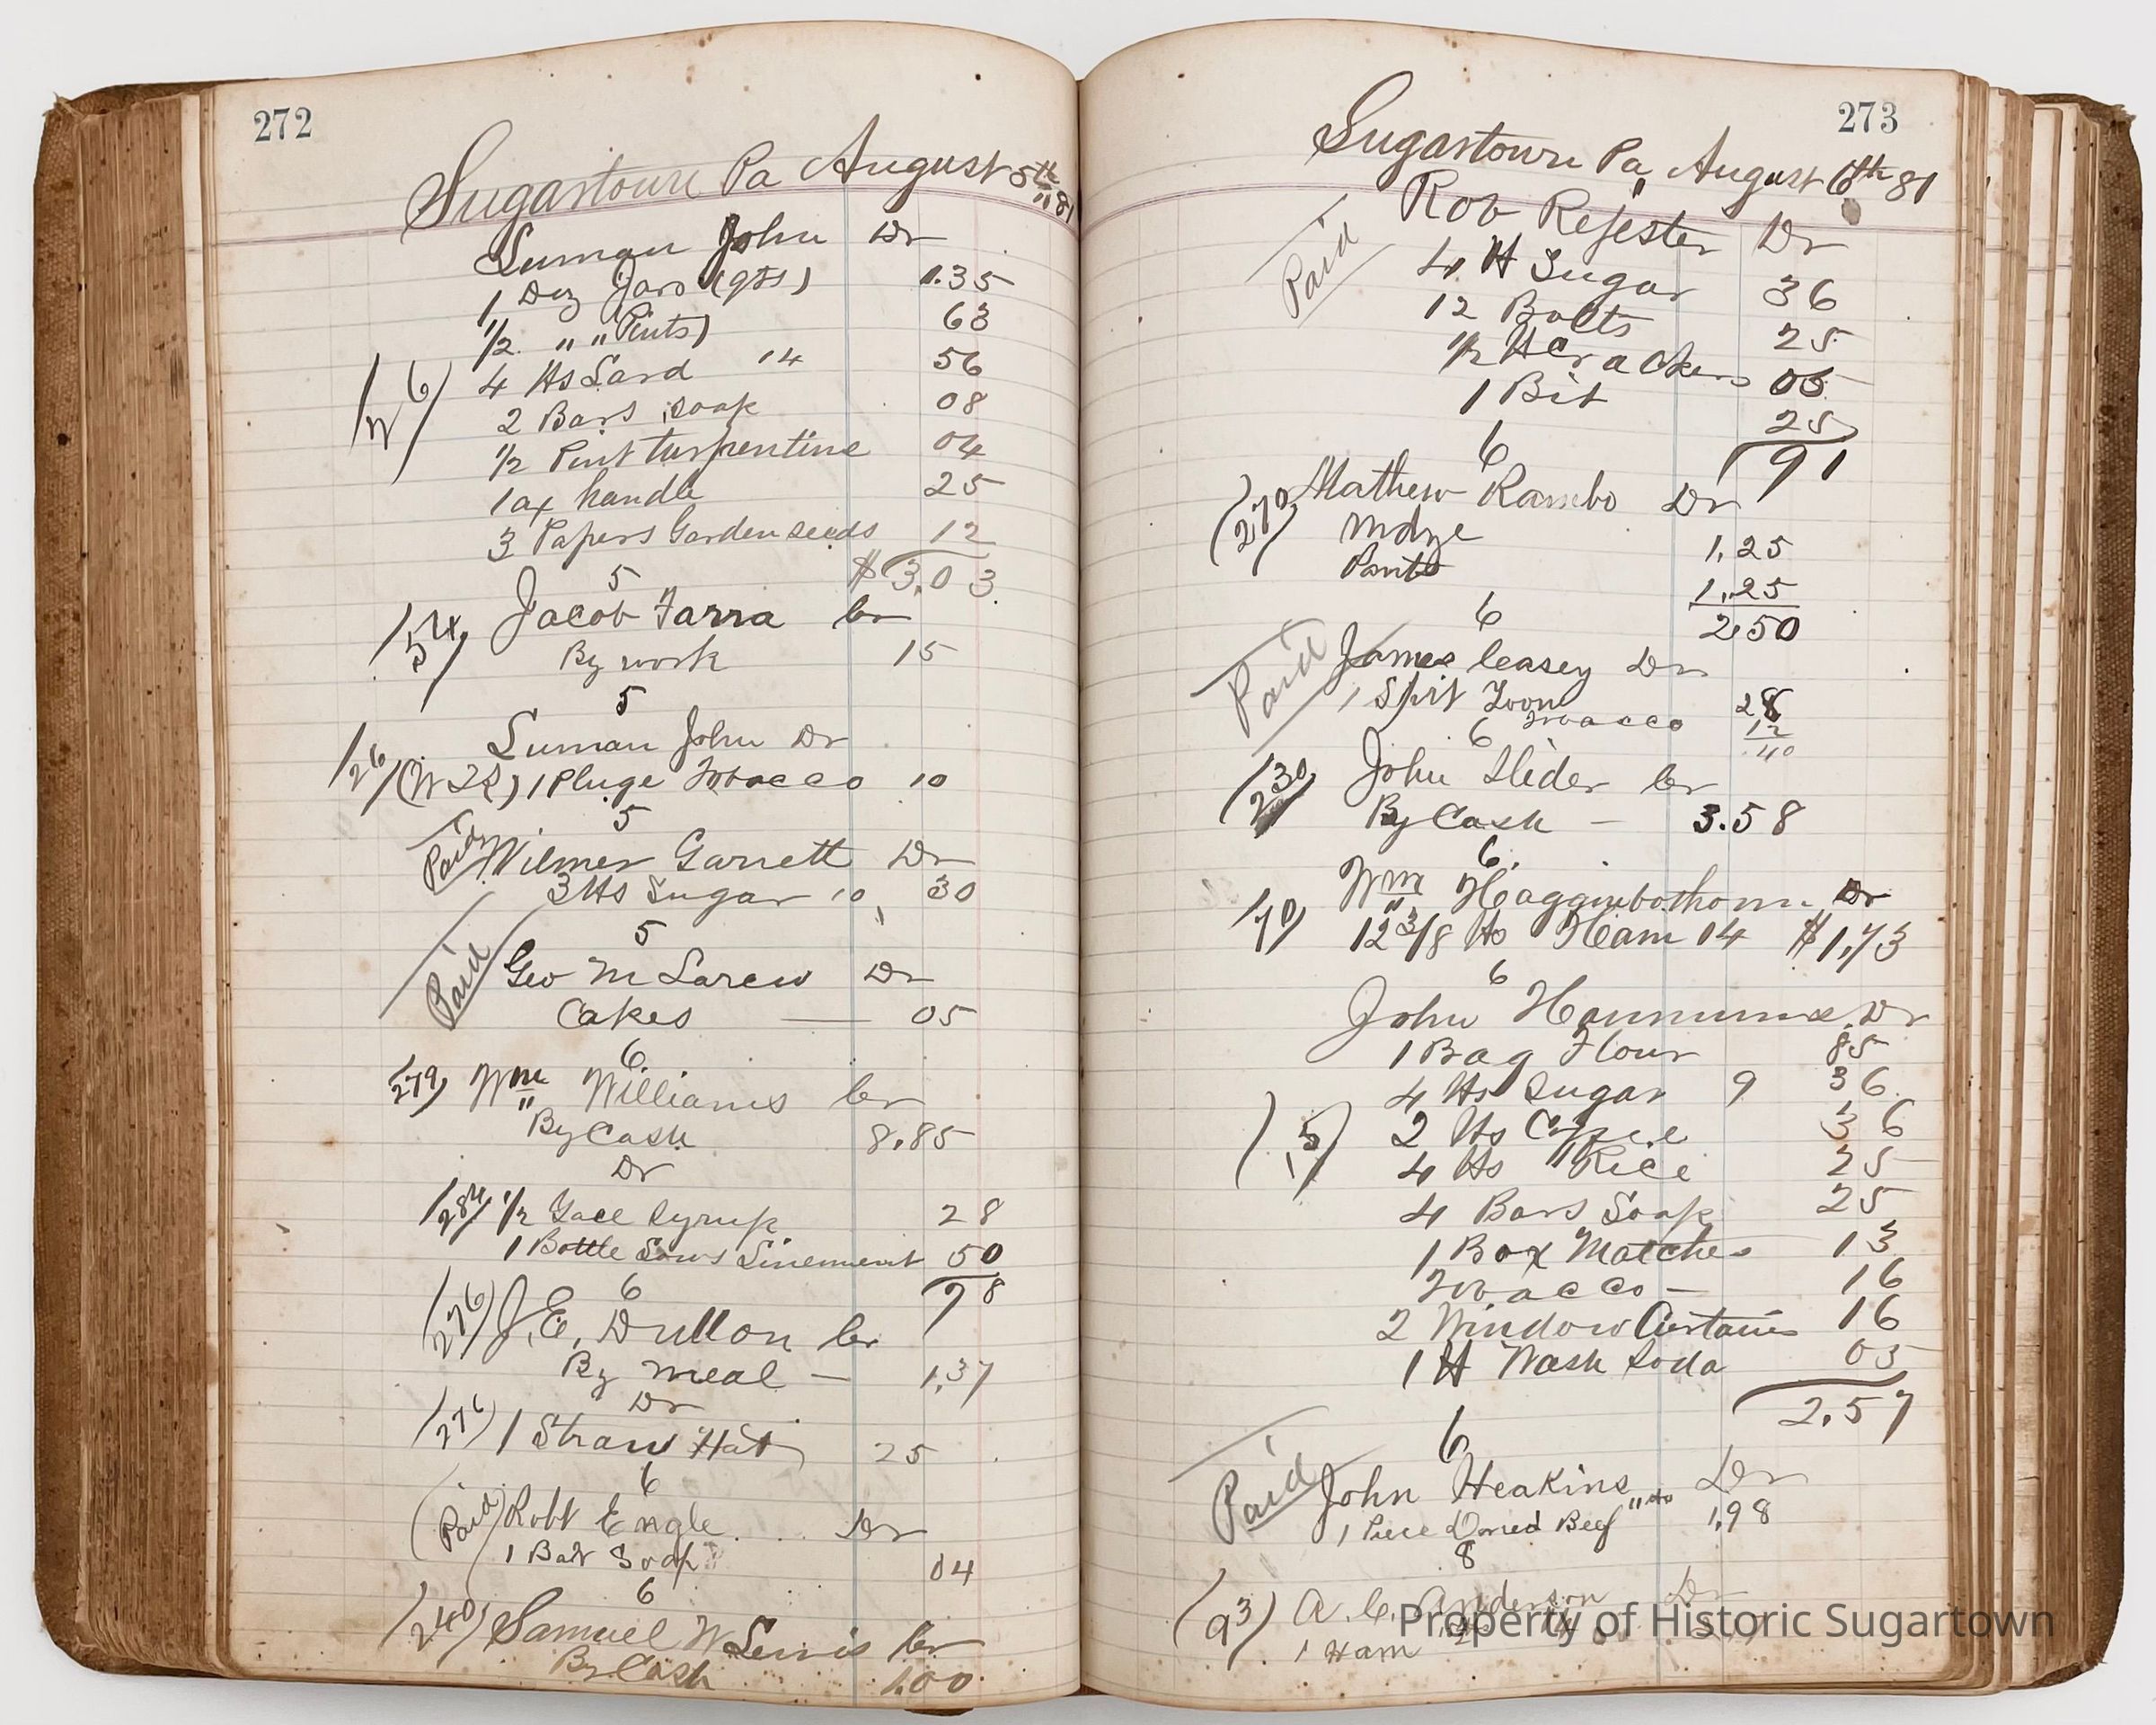 272
Sugartown Pa August 5th 81
Luman John Dr
1 Doz Jars (qts) 1.35
1/2 " " Pints) 63
126
4 lbs Lard 14 56
2 Bars soap 08
1/2 Pint turpentine 04
1 ax handle 25
3 Papers Garden seeds 12
$3.03
5
154 Jacob Farra Cr
By work 15
5
Luman John Dr
126 1 Pluge Tobacco 10
5
Paid Wilmer Garrett Dr
3 lbs Sugar 10 30
5
Paid Geo M Larew Dr
Cakes — 05
6
279 Wm Williams Cr
By Cash 8.85
Dr
284 1/2 Gall Syrup 28
1 Bottle Sows Linement 50
78
6
(276) J. E. Dutton Cr
By meal — 1,37
Dr
(276) 1 Straw Hat 25
6
(Paid) Robt Engle Dr
1 Bar Soap 04
6
(240) Samuel W Lewis Cr
By Cash 1.00
273
Sugartown Pa, August 6th 81
Rob Rejester Dr
Paid
4 lb Sugar 36
12 Bolts 25
1/2 lb Crackers 05
1 Bit 25
91
6
(270) Mathew Rambo Dr
Mdze 1,25
Pants 1,25
2,50
6
Paid James Casey Dr
1 Spit Toon 28
Tobacco 12
6 40
(230) John Slider Cr
By Cash — 3.58
6.
Wm Hagginbothom Dr
170 12 3/8 lbs Ham 14 $1,73
6
John Hannum Dr
1 Bag Flour 85
4 lbs Sugar 9 36
(15) 2 lbs Coffee 36
4 lbs Rice 25
4 Bars Soap 25
1 Box Matches 13
Tobacco — 16
2 Window Curtains 16
1 lb Wash Soda 05
2.57
6
Paid John Heakins Dr
1 Piece Dried Beef 1,98
8
(93) A. C. Anderson Dr
1 Ham
Property of Historic Sugartown